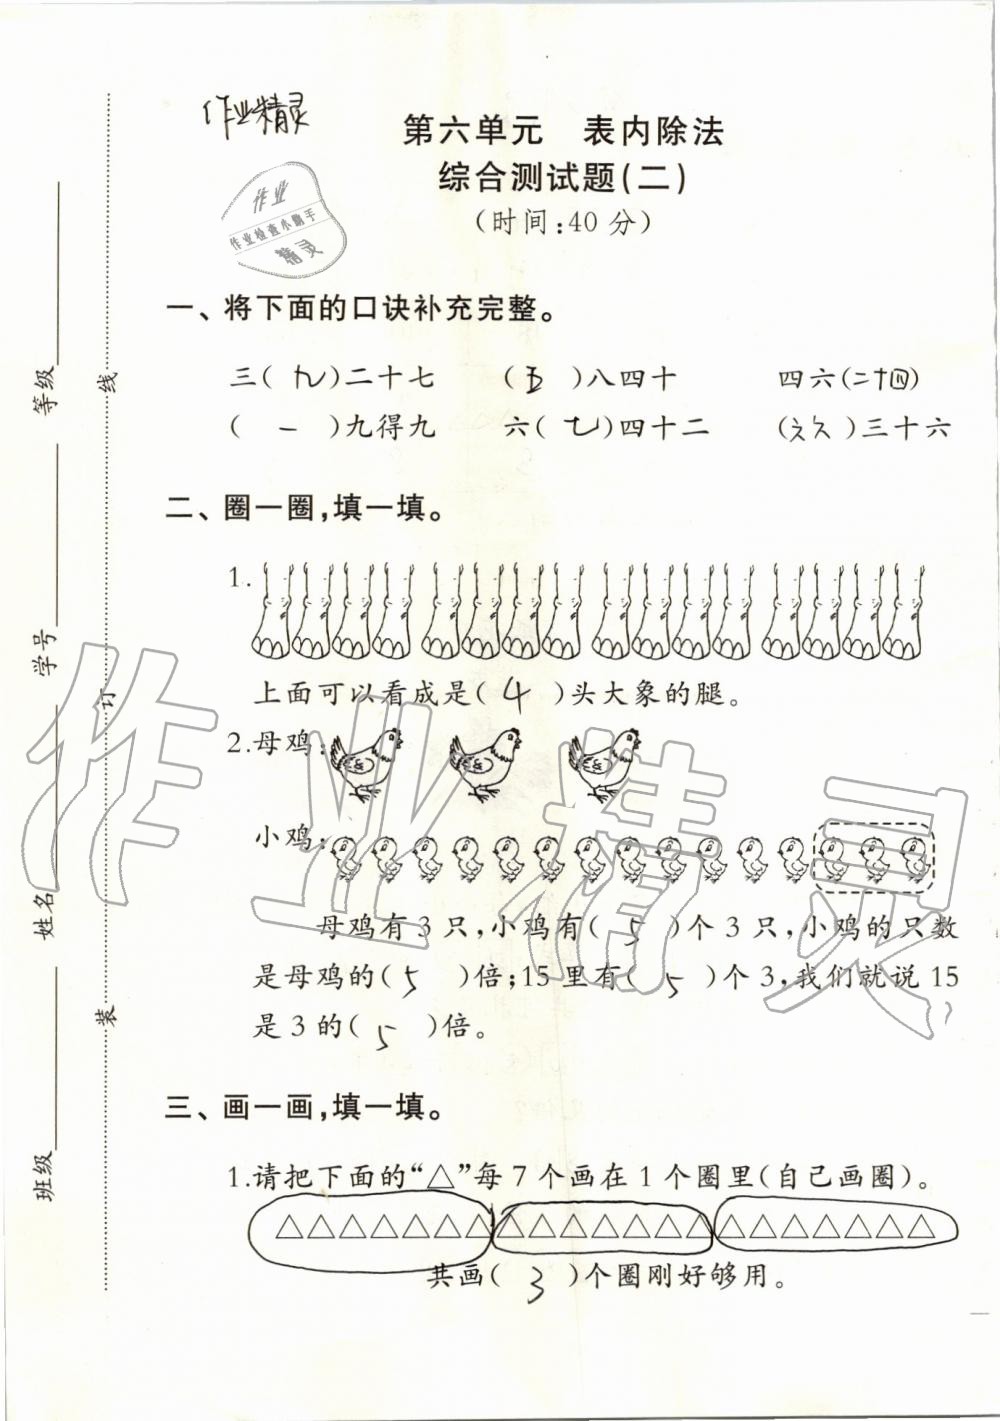 作业精灵
第六单元 表内除法
综合测试题(二)
(时间:40分)
作业
作业检查小助手
精灵
一、将下面的口诀补充完整。
三(九)二十七 (五)八四十 四六(二十四)
(一)九得九 六(七)四十二 (六六)三十六
二、圈一圈,填一填。
1.
上面可以看成是(4)头大象的腿。
2.母鸡:
小鸡:
母鸡有3只,小鸡有(5)个3只,小鸡的只数
是母鸡的(5)倍;15里有(5)个3,我们就说15
是3的(5)倍。
三、画一画,填一填。
1.请把下面的“△”每7个画在1个圈里(自己画圈)。
△△△△△△△△△△△△△△△△△△△△△
共画(3)个圈刚好够用。
班级 姓名 学号 等级
装 订 线
作业精灵